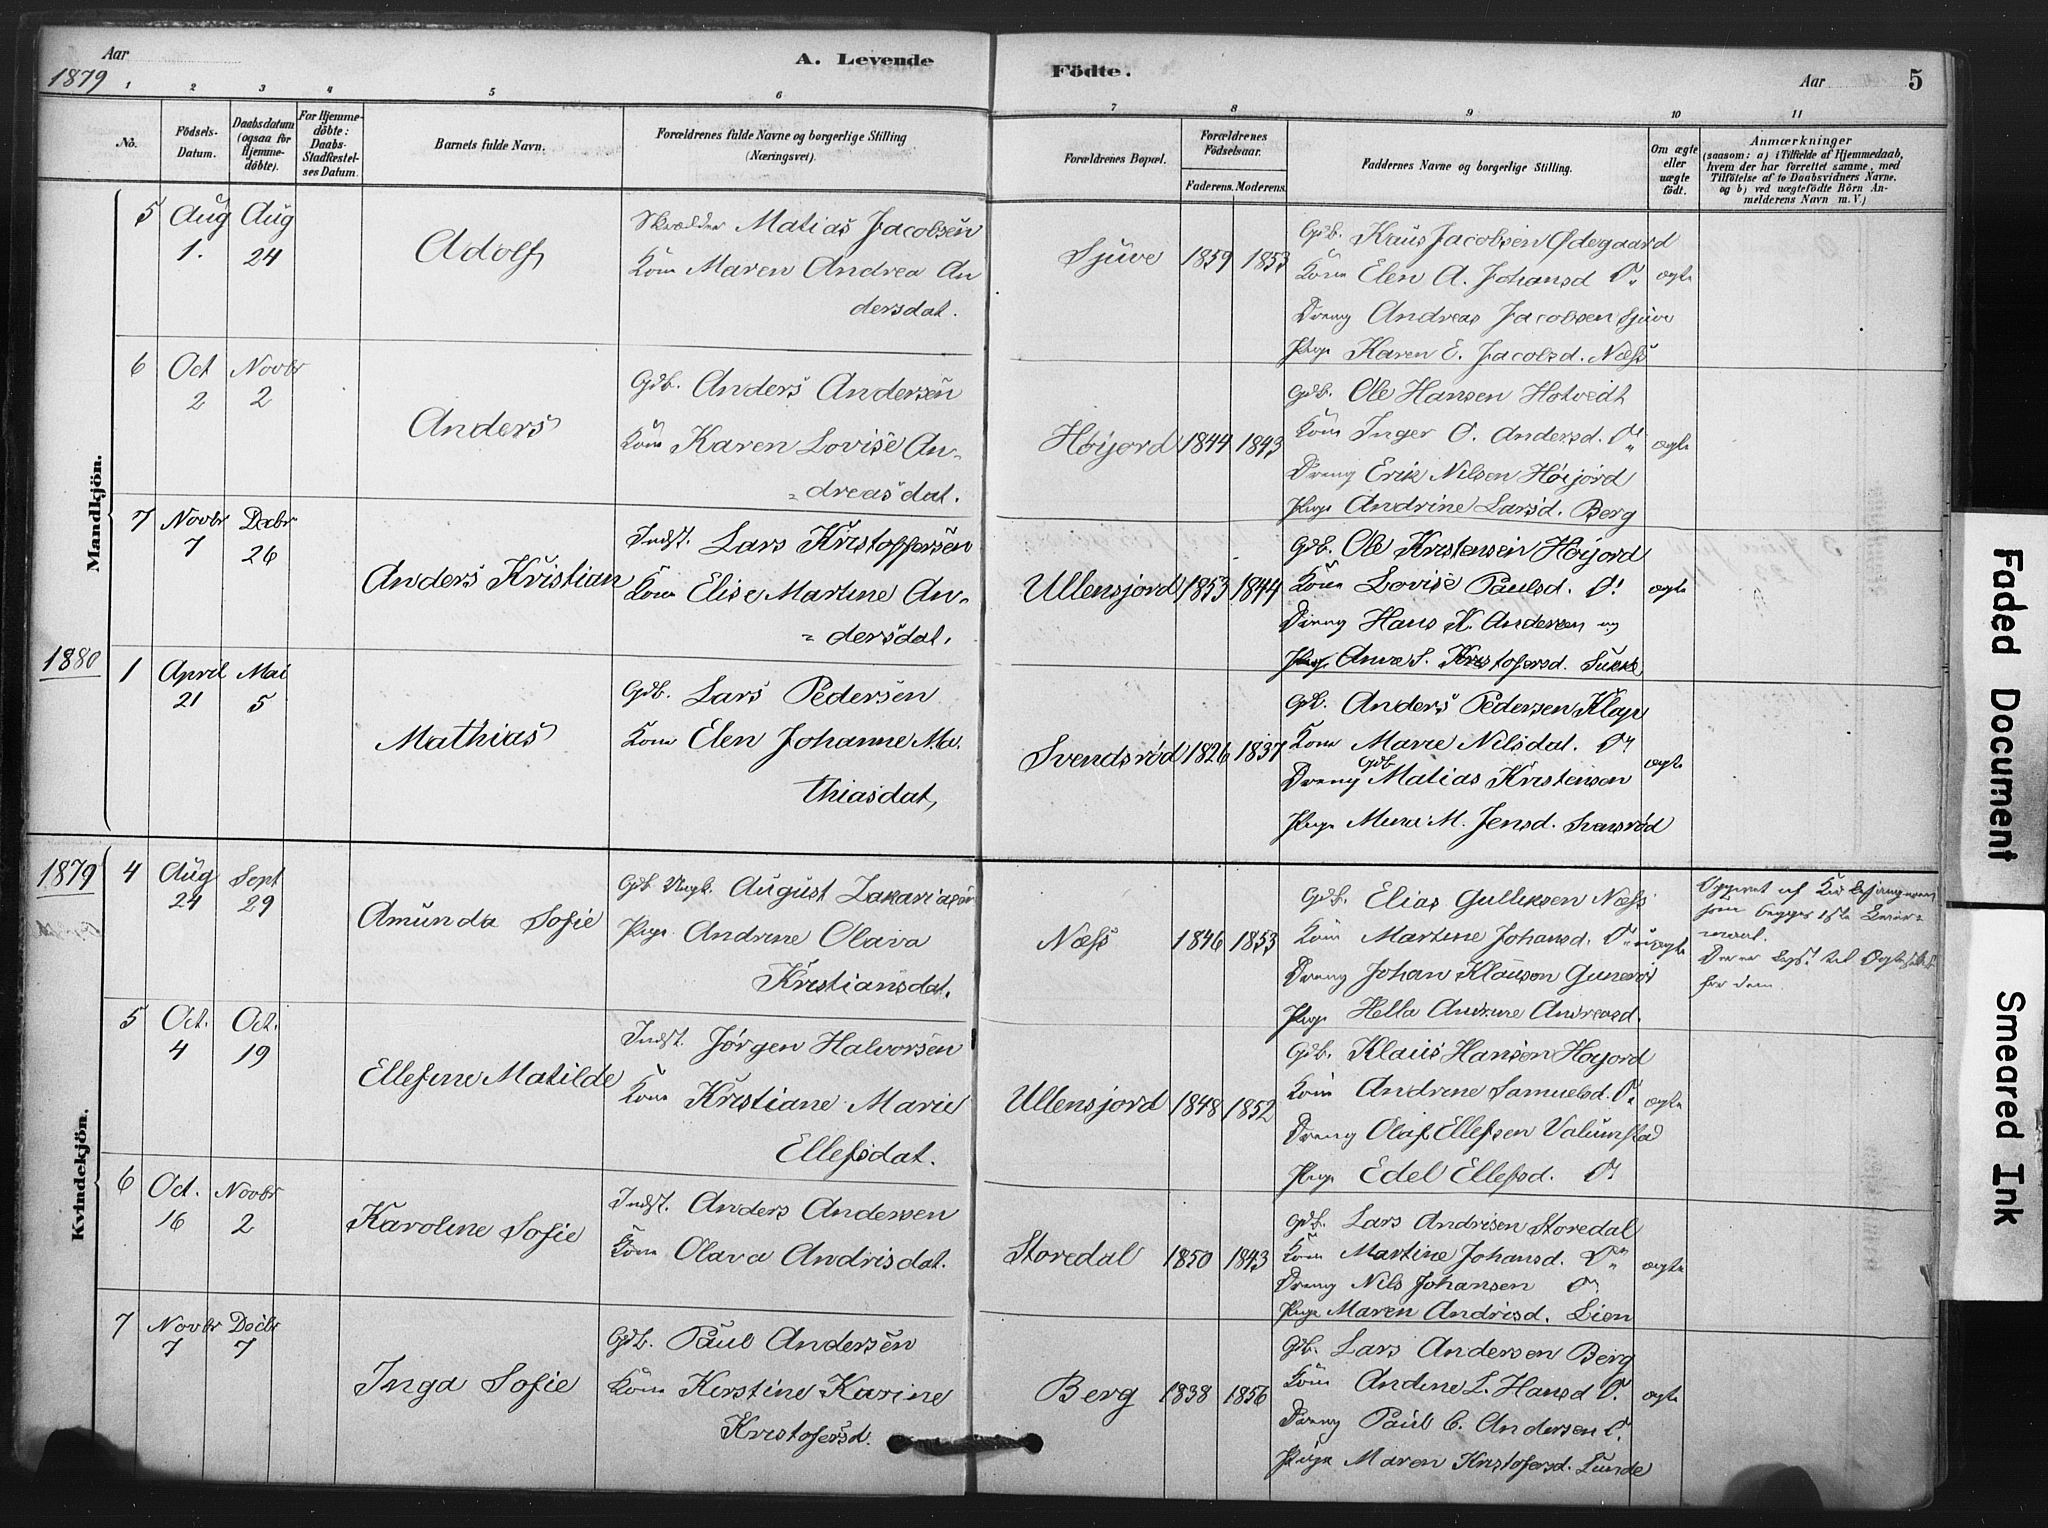 Aar
1879
A. Levende
Födte.
Aar
5
1 2 3 4 5 6 7 8 9 10 11
No.
Födsels-
Datum.
Daabsdatum
(ogsaa for
Hjemme-
döbte).
For Hjemme-
döbte:
Daabs-
Stadfæstel-
ses Datum.
Barnets fulde Navn.
Forældrenes fulde Navne og borgerlige Stilling
(Næringsvei).
Forældrenes Bopæl.
Forældrenes
Födselsaar.
Faderens. Moderens.
Faddernes Navne og borgerlige Stilling.
Om ægte
eller
uægte
födt.
Anmærkninger
(saasom: a) i Tilfælde af Hjemmedaab,
hvem der har forrettet samme, med
Tilföielse af to Daabsvidners Navne.
og b) ved uægtefödte Börn An-
melderens Navn m. V.)
Mandkjön.
5 Aug 1. Aug 24
Adolf
Skrædder Matias Jacobsen
Kone Maren Andrea An
dersdat.
Sjüve 1859 1853
Gdb. Kaus Jacobsen Ødegaard
Kone Elen A. Johansd. Do
Dreng Andreas Jacobsen Sjüve
Pige Karen E. Jacobsd. Næss
ægte
6 Oct 2 Novbr 2
Anders
Gdb. Anders Andersen
Kone Karen Lovise An-
dreasdat.
Höijord 1844 1843
Gdb. Ole Hansen Hotvedt
Kone Inger O. Andersd. Do
Dreng Erik Nilsen Höijord
Pige Andrine Larsd. Berg
ægte
7 Novbr 7 Decbr 26
Anders Kristian
Indst. Lars Kristoffersen
Kone Elise Martine An-
dersdat.
Ullensjord 1853 1844
Gdb. Ole Kristensen Höijord
Kone Lovise Paulsd. Do
Dreng Hans K. Andersen og
Pige Anne S. Kristofersd. Sukke
ægte
1880
1 April 21 Mai 5
Mathias
Gdb. Lars Pedersen
Kone Elen Johanne Ma-
thiasdat.
Svendsröd 1826 1837
Gdb. Anders Pedersen Klop
Kone Marie Nilsdat. Do
Dreng Gdb Matias Kristensen
Pige M. Jensd.
ægte
1879
Kvindekjön.
4 Aug 24 Sept 29
Amunda Sofie
Gdb Ungk. August Zakariasen
Pige Andrine Olava
Kristiansdat.
Næss 1846 1853
Gdb. Elias Gulliksen Næss
Kone Martine Johansd. Do
Dreng Johan Klausen Guneröd
Pige Hella Andrine Andreasd.
uægte
Opgivet af Kirkesangeren
som begges 1ste Leier-
maal.
Der er lyst til Ægteskab
for dem.
5 Oct. 4 Oct. 19
Ellefine Matilde
Indst. Jörgen Halvorsen
Kone Kristiane Marie
Ellefsdat.
Ullensjord 1848 1852
Gdb. Klaus Hansen Höyjord
Kone Andrine Samuelsd. Do
Dreng Olaf Ellefsen Valumstad
Pige Edel Ellefsd. Do
ægte
6 Oct. 16 Novbr 2
Karoline Sofie
Indst. Anders Andersen
Kone Olava Andrisdat.
Storedal 1850 1843
Gdb. Lars Andrisen Storedal
Kone Martine Johansd. Do
Dreng Nils Johansen Do
Pige Maren Andrisd. Lien
ægte
7 Novbr 7 Decbr 7
Inga Sofie
Gdb. Paul Andersen
Kone Kirstine Karine
Kristofersd.
Berg 1838 1856
Gdb. Lars Andersen Berg
Kone Andine L. Hansd. Do
Dreng Paul C. Andersen Do
Pige Maren Kristofersd. Lunde
ægte
Faded Document
Smeared Ink